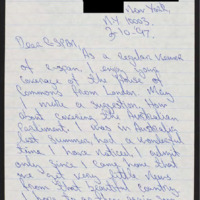 New York
N.Y. 10003.
3-10-97
Dear C-SPAN,
As a regular viewer
of c-span, I enjoy your
coverage of the House of
Commons from London. May
I make a suggestion
about covering the Australian
Parliament. I was in Australia
last summer, had a wonderful
time. I have noticed, I
only since I came home that
we get very little news
from that beautiful country.
I hope to